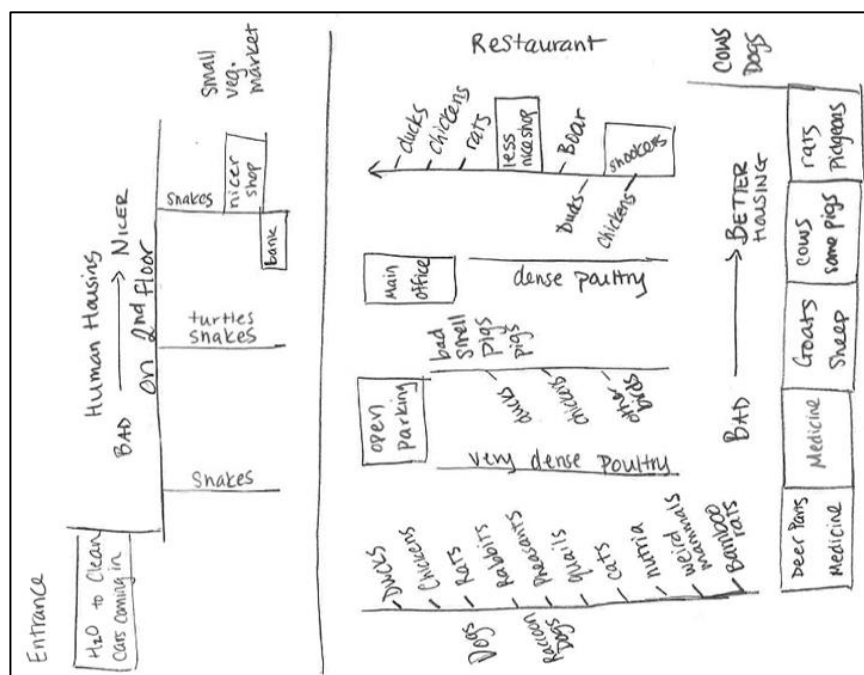 Entrance
H20 to Clean
Cars coming in
Human Housing
BAD → NICER
on 2nd floor
Small
veg.
market
snakes
nicer
shop
bank
turtles
snakes
Snakes
Restaurant
ducks
chickens
rats
less
nice shop
Boar
Ducks
Chickens
Main
Office
dense poultry
bad
smell
pigs
pigs
ducks
chickens
other
birds
open
parking
very dense poultry
Ducks
Chickens
Rats
Rabbits
Pheasants
quails
Cats
nutria
weird
mammals
Bamboo
rats
Dogs
Raccoon
Dogs
COWS
Dogs
BAD → BETTER
HOUSING
rats
Pidgeons
COWS
some pigs
Goats
Sheep
Medicine
Medicine